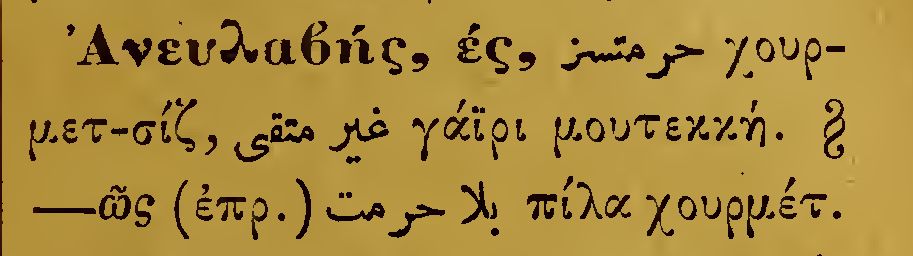 Ἀνευλαβής, ές, حرمتسز χουρ-
μετ-σίζ, غير متقى γάϊρι μουτεκκή. §
—ῶς (ἐπρ.) بلا حرمت πίλα χουρμέτ.